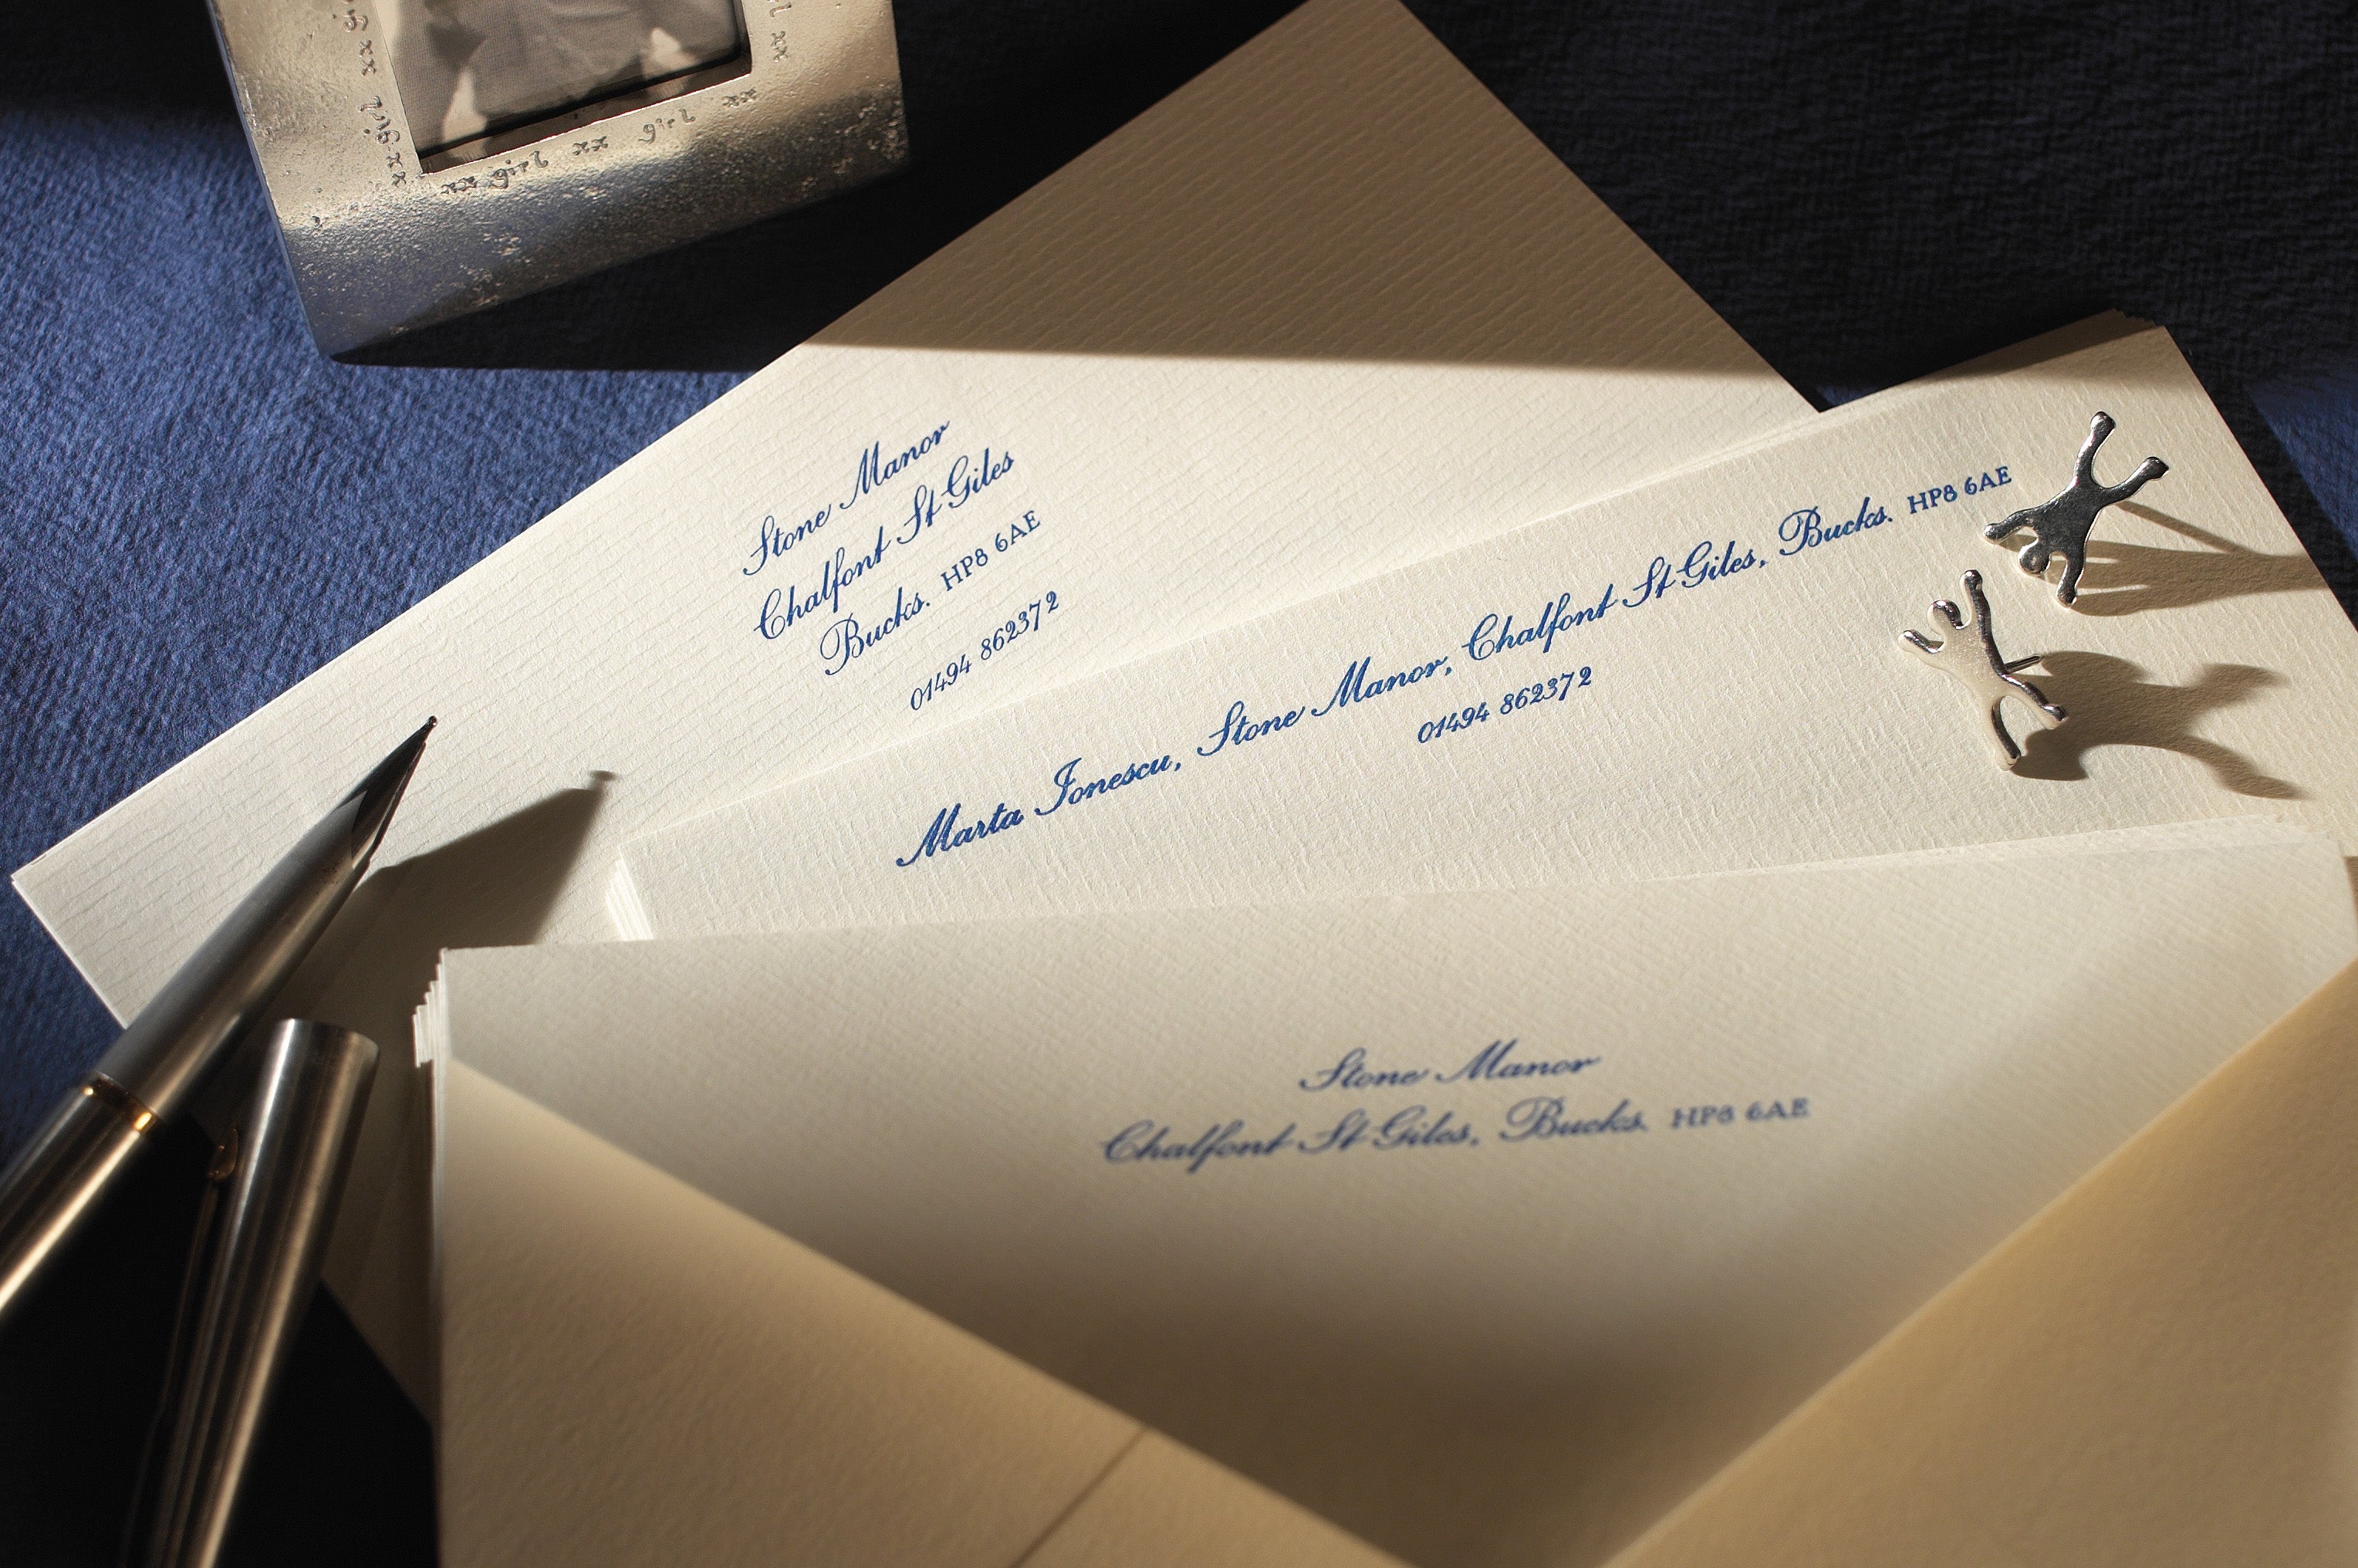 xx girl xx girl xx girl xx
Stone Manor
Chalfont St Giles
Bucks. HP8 6AE
01494 862372
Marta Ionescu, Stone Manor, Chalfont St Giles, Bucks. HP8 6AE
01494 862372
Stone Manor
Chalfont St Giles, Bucks. HP8 6AE